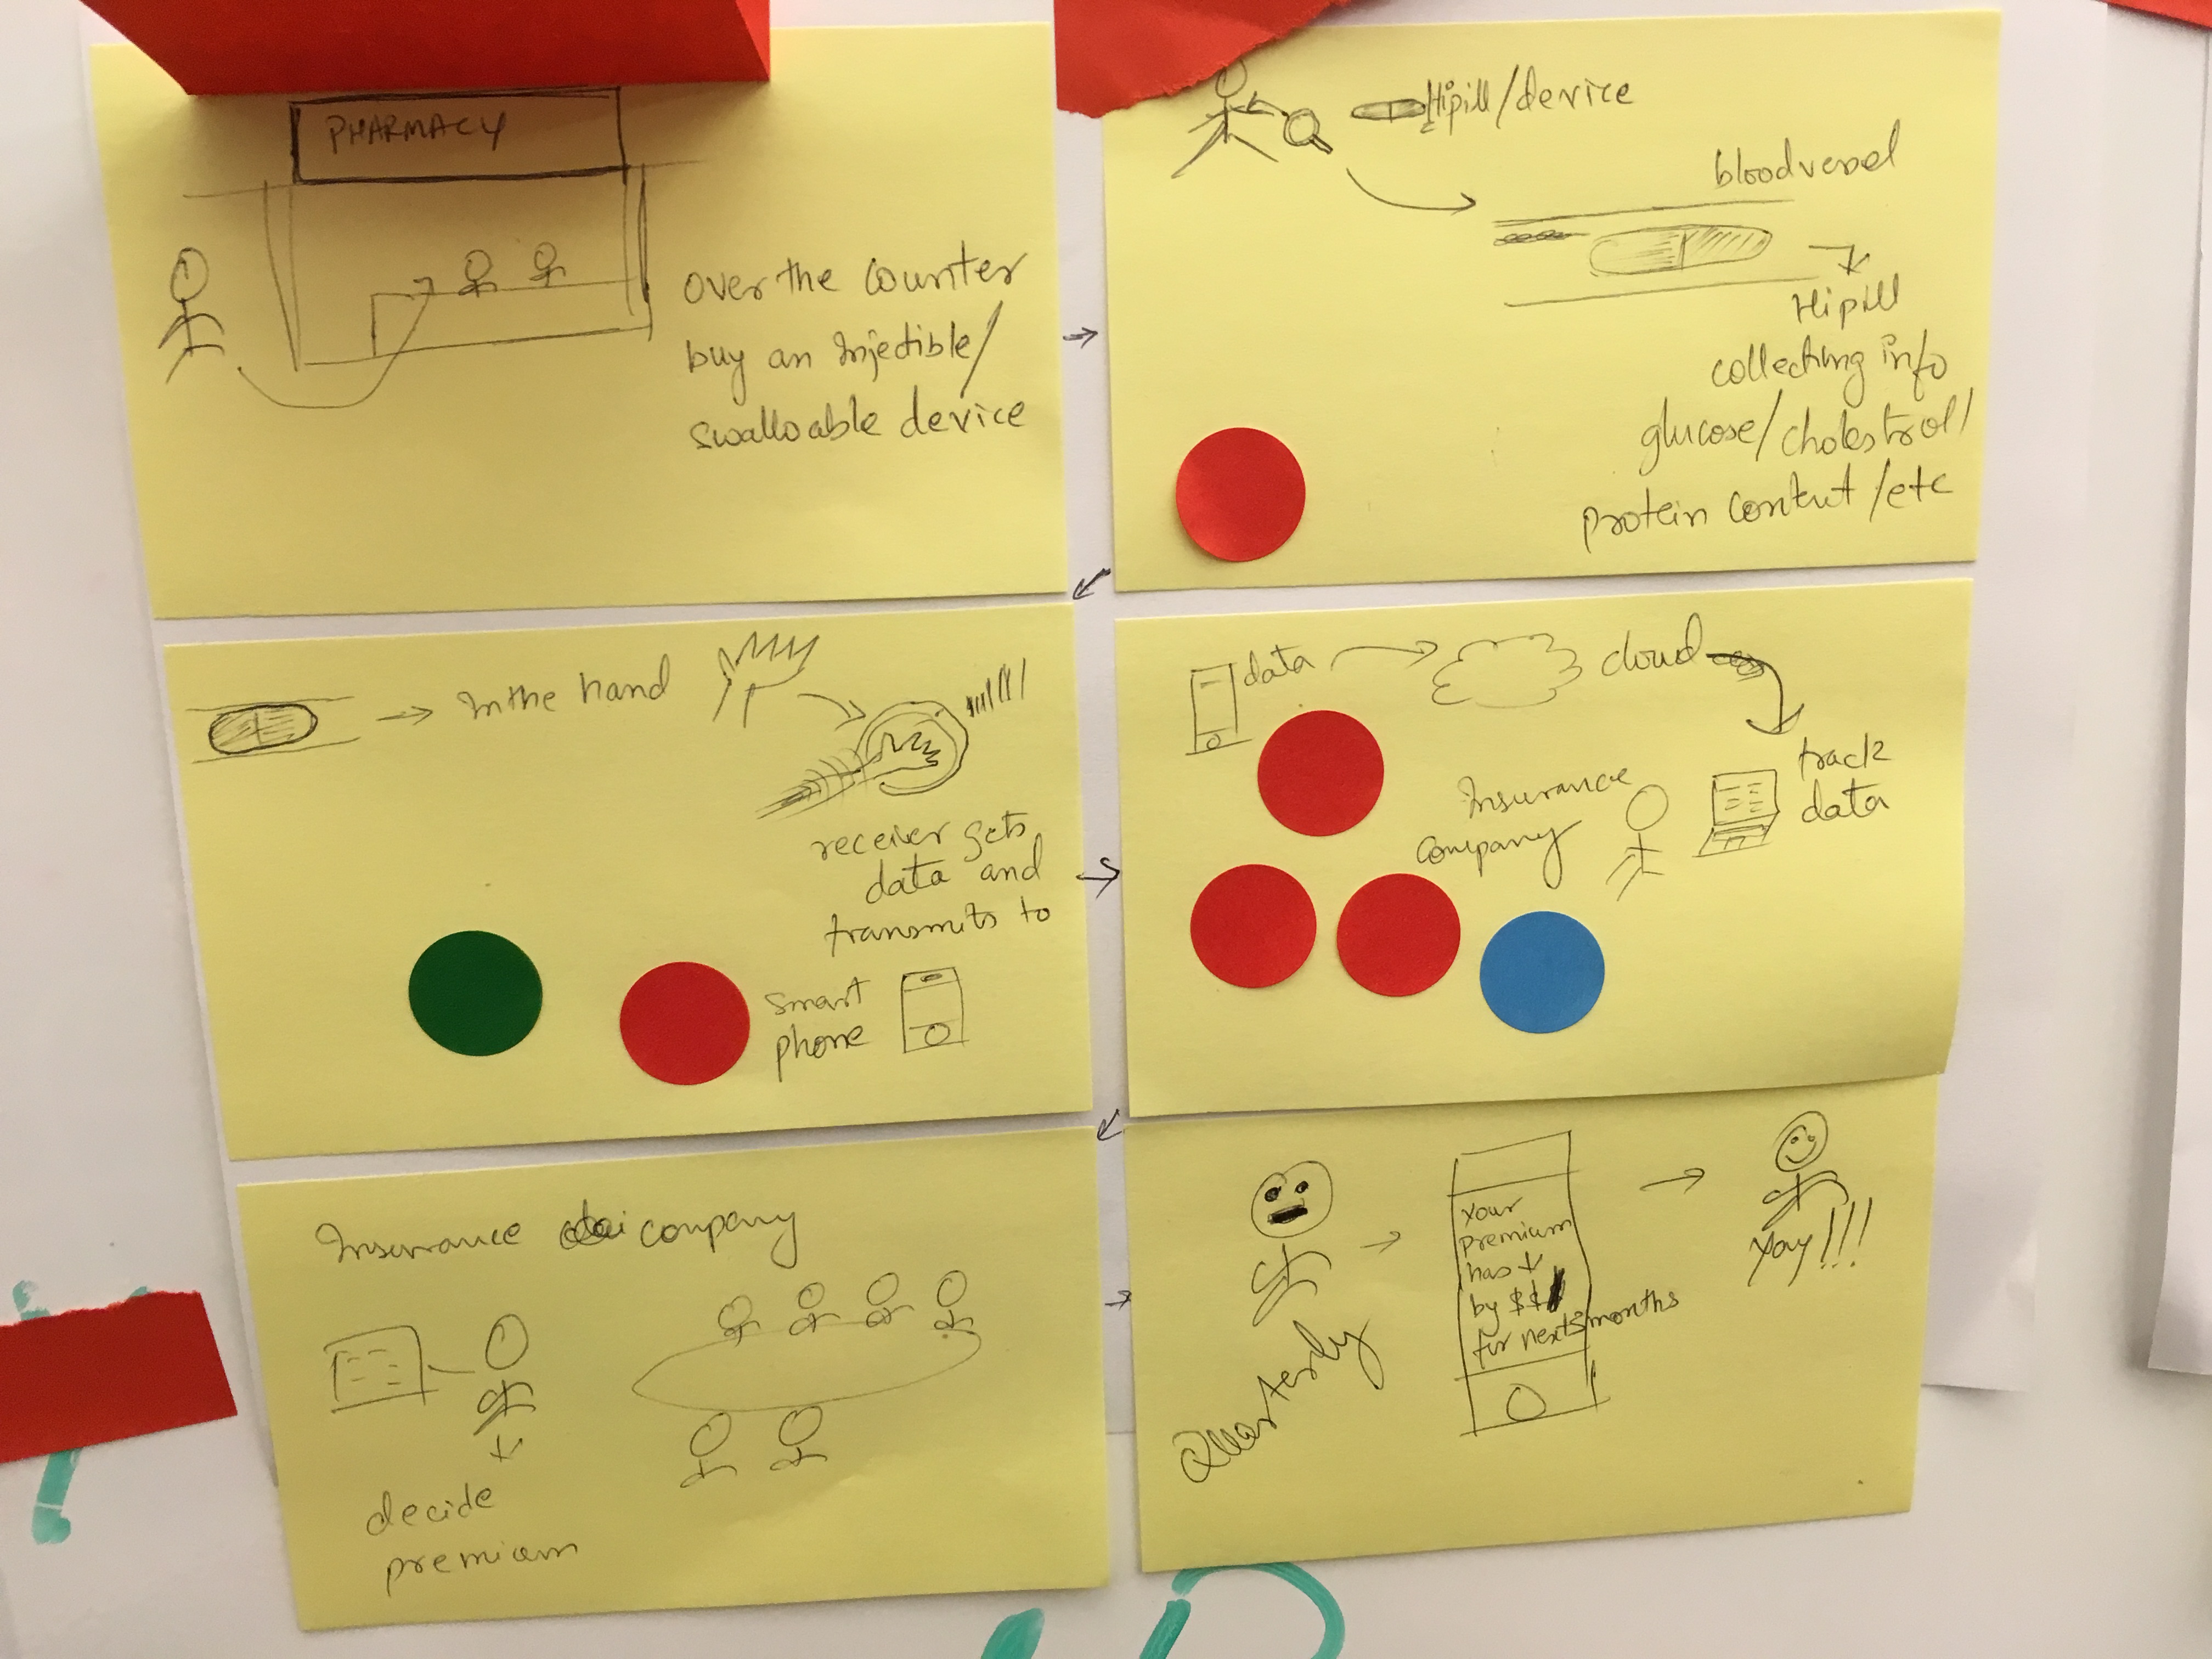 PHARMACY
over the counter
buy an Injectible/
swalloable device
Hipill/device
bloodvessel
Hipill
collecting info
glucose/cholestrol/
protein content/etc
In the hand
receiver gets
data and
transmits to
smart
phone
data
cloud
track
data
Insurance
company
Insurance company
decide
premium
Quarterly
your
premium
has ↓
by $$
for next 3 months
Yay!!!